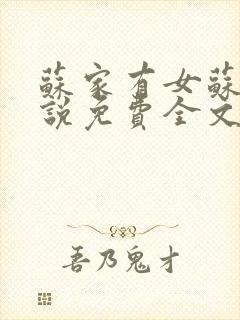 蘇家有女蘇
說免費全文
吾乃鬼才